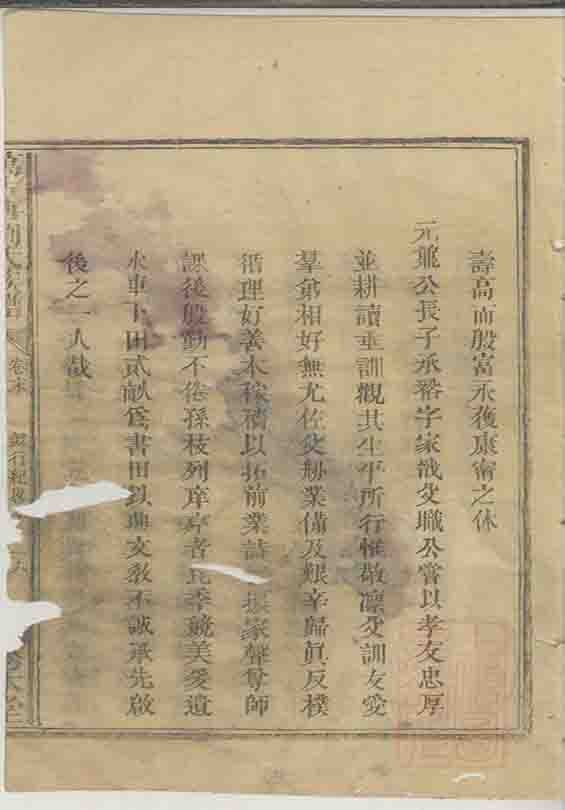 壽高而殷富永獲康甯之休
元龍公長子承裕字家戢父職公嘗以孝友忠厚
並耕讀垂訓觀其生平所行惟敬凛父訓友愛
羣弟相好無尤佐父刱業備及艱辛歸眞反樸
循理好善木稼穡以拓前業詩家聲尊師
課後殷勤不倦孫枝列庠序者競美爰遺
水車丘田貳畝爲書田以興文敎不誠承先啟
後之一人哉
劉氏宗譜
卷末
行紀